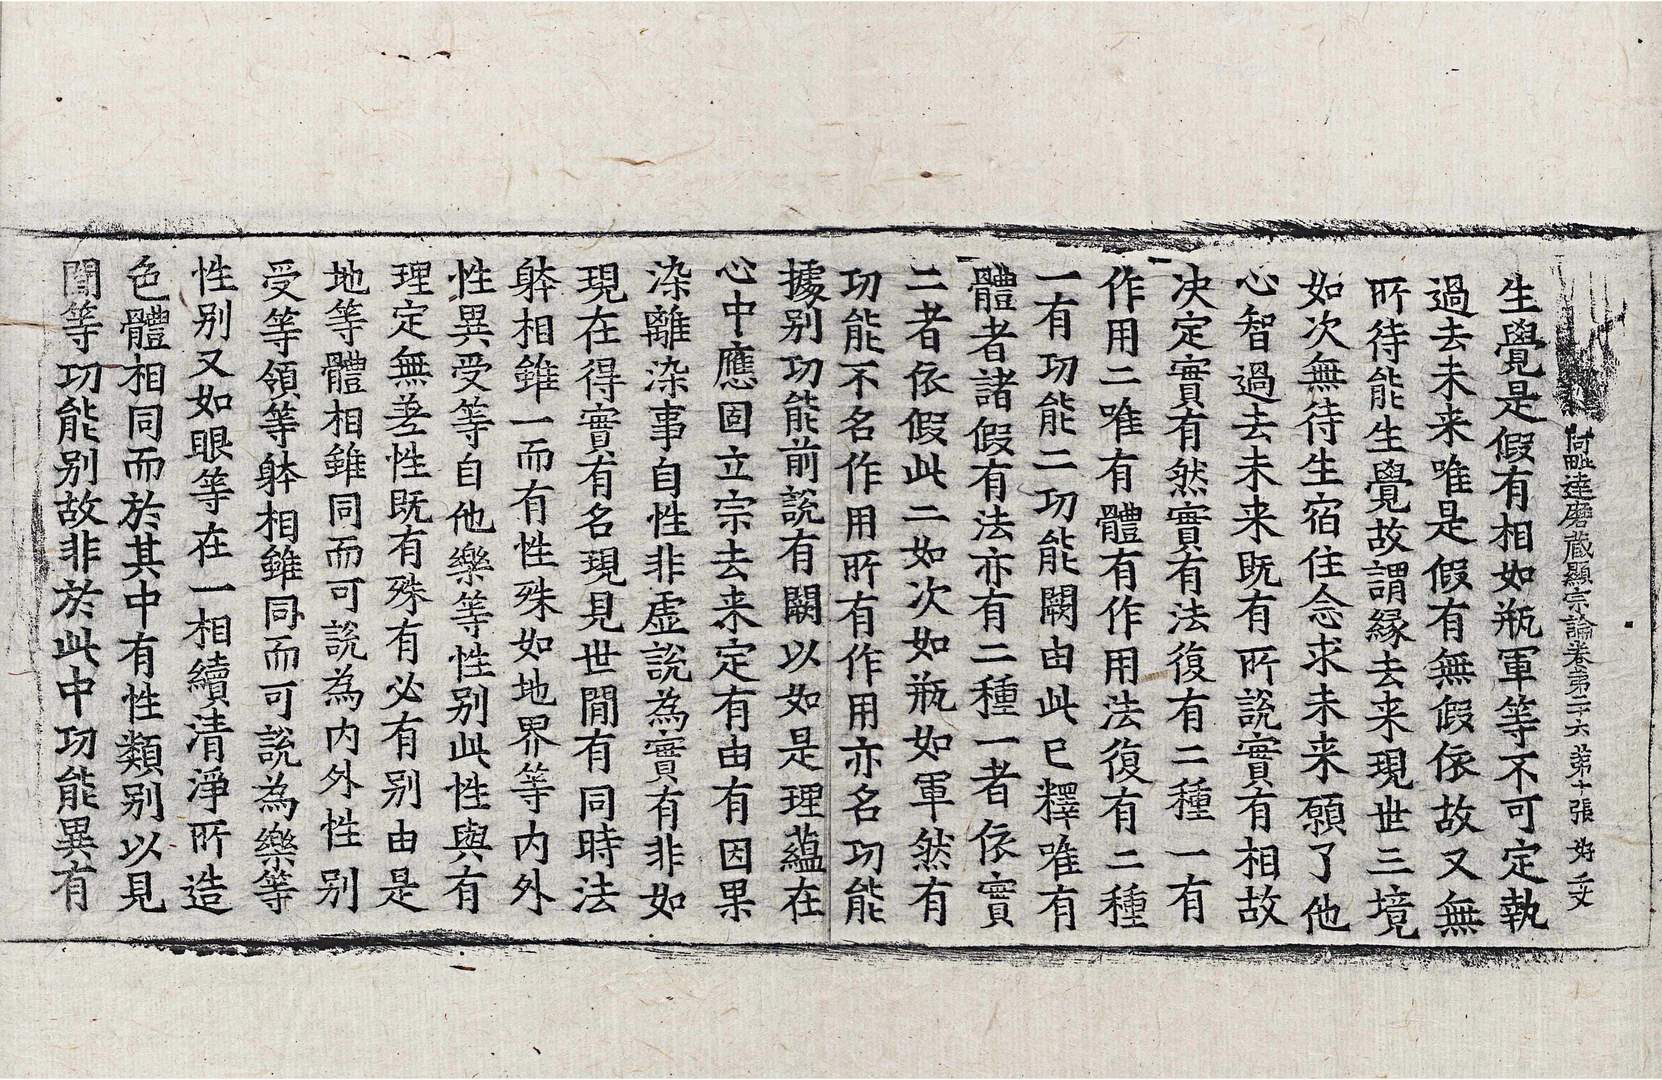 阿毗達磨藏顯宗論卷第二十六 第十張 好
生覺是假有相如瓶軍等不可定執
過去未来唯是假有無假依故又無
所待能生覺故謂緣去来現世三境
如次無待生宿住念求未来願了他
心智過去未来既有所說實有相故
決定實有然實有法復有二種一有
作用二唯有體有作用法復有二種
一有功能二功能闕由此已釋唯有
體者諸假有法亦有二種一者依實
二者依假此二如次如瓶如軍然有
功能不名作用所有作用亦名功能
據別功能前說有闕以如是理蘊在
心中應固立宗去来定有由有因果
染離染事自性非虛說為實有非如
現在得實有名現見世間有同時法
躰相雖一而有性殊如地界等內外
性異受等自他樂等性別此性與有
理定無差性既有殊有必有別由是
地等體相雖同而可說為內外性別
受等領等躰相雖同而可說為樂等
性別又如眼等在一相續清淨所造
色體相同而於其中有性類別以見
聞等功能別故非於此中功能異有